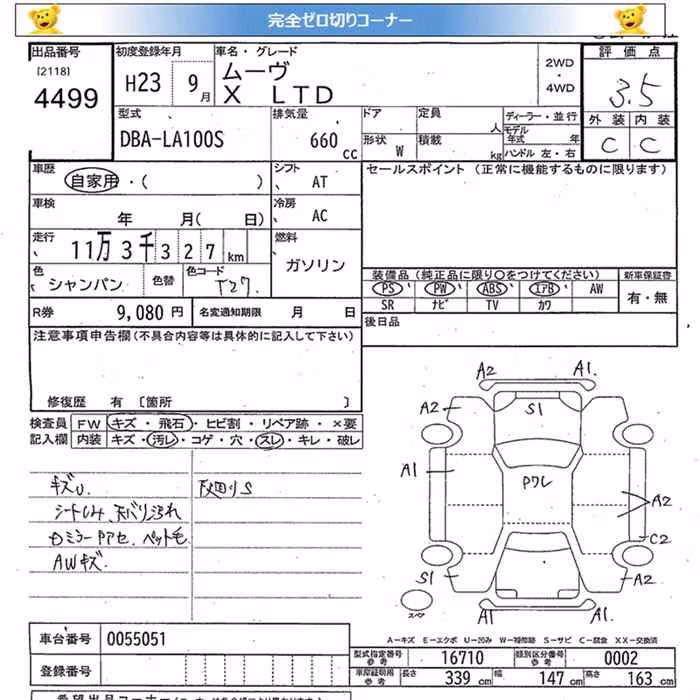 完全ゼロ切りコーナー
出品番号 初度登録年月 車名・グレード 2WD・4WD 評価点
[2118]
4499 H23 9月 ムーヴ
X LTD 3.5
型式 排気量 ドア 定員 人 ディーラー・並行 外装 内装
DBA-LA100S 660 cc 形状 W 積載 kg モデル年式 年 C C
ハンドル 左・右
車歴 自家用・( ) シフト AT セールスポイント (正常に機能するものに限ります)
車検 年 月( 日) 冷房 AC
走行 11万3千327km 燃料 ガソリン
色 シャンパン 色替 色コード T27 装備品(純正品に限り○をつけてください) 新車保証書
PS PW ABS エアB AW 有・無
SR ナビ TV カワ
R券 9,080円 名変通知期限 月 日 後日品
注意事項申告欄(不具合内容等は具体的に記入して下さい)
修復歴 有 [箇所 ]
検査員 FW キズ・飛石・ヒビ割・リペア跡・×要
記入欄 内装 キズ・汚レ・コゲ・穴・スレ・キレ・破レ
キズU.
シートしみ、天バリ汚れ
ペット毛
AWキズ.
A2 A1.
A2 S1 A2
A1 Pワレ A2
C2
S1 A2
A1 A1.
スペア
A-キズ E-エクボ U-凹み W-補修跡 S-サビ C-腐食 XX-交換済
車台番号 0055051 型式指定番号 参考 16710 類別区分番号 参考 0002
登録番号 車庫証明用 参考 長さ 339 cm 幅 147 cm 高さ 163 cm